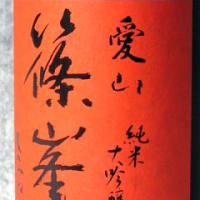 愛山
篠峯
純米
大吟醸